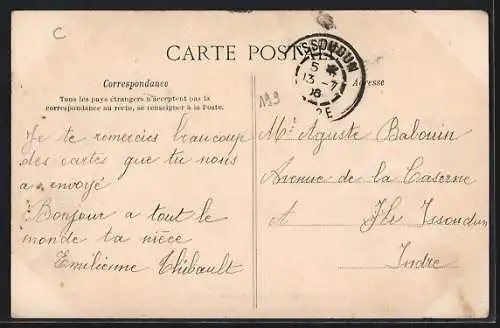 C
CARTE POSTALE
ISSOUDUN
5 *
13 - 7
16
RE
Correspondance
Adresse
Tous les pays étrangers n'acceptent pas la
correspondance au recto, se renseigner à la Poste.
Je te remercies beaucoup
des cartes que tu nous
a envoyé
Bonjour a tout le
monde ta nièce
Emilienne Thibault
Mr Aguste Babouin
Avenue de la Caserne
A Issoudun
Indre